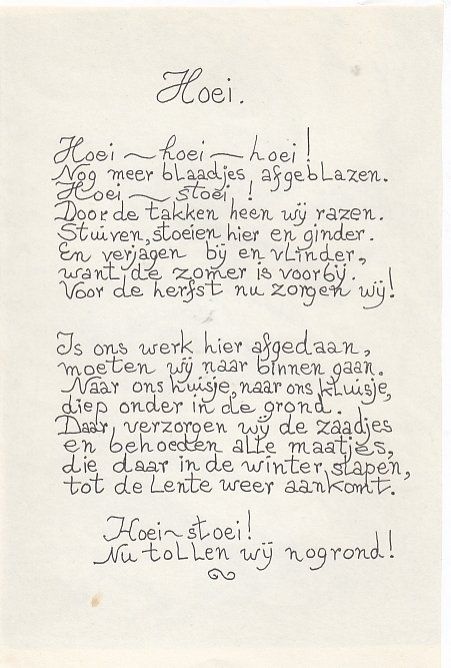 Hoei.
Hoei ~ hoei ~ hoei!
Nog meer blaadjes afgeblazen.
Hoei ~ stoei!
Door de takken heen wij razen.
Stuiven, stoeien hier en ginder.
En verjagen bij en vlinder,
want de zomer is voorbij.
Voor de herfst nu zorgen wij!
Is ons werk hier afgedaan,
moeten wij naar binnen gaan.
Naar ons huisje, naar ons kluisje,
diep onder in de grond.
Daar verzorgen wij de zaadjes
en behoeden alle maatjes,
die daar in de winter slapen,
tot de Lente weer aankomt.
Hoei ~ stoei!
Nu tollen wij nog rond!